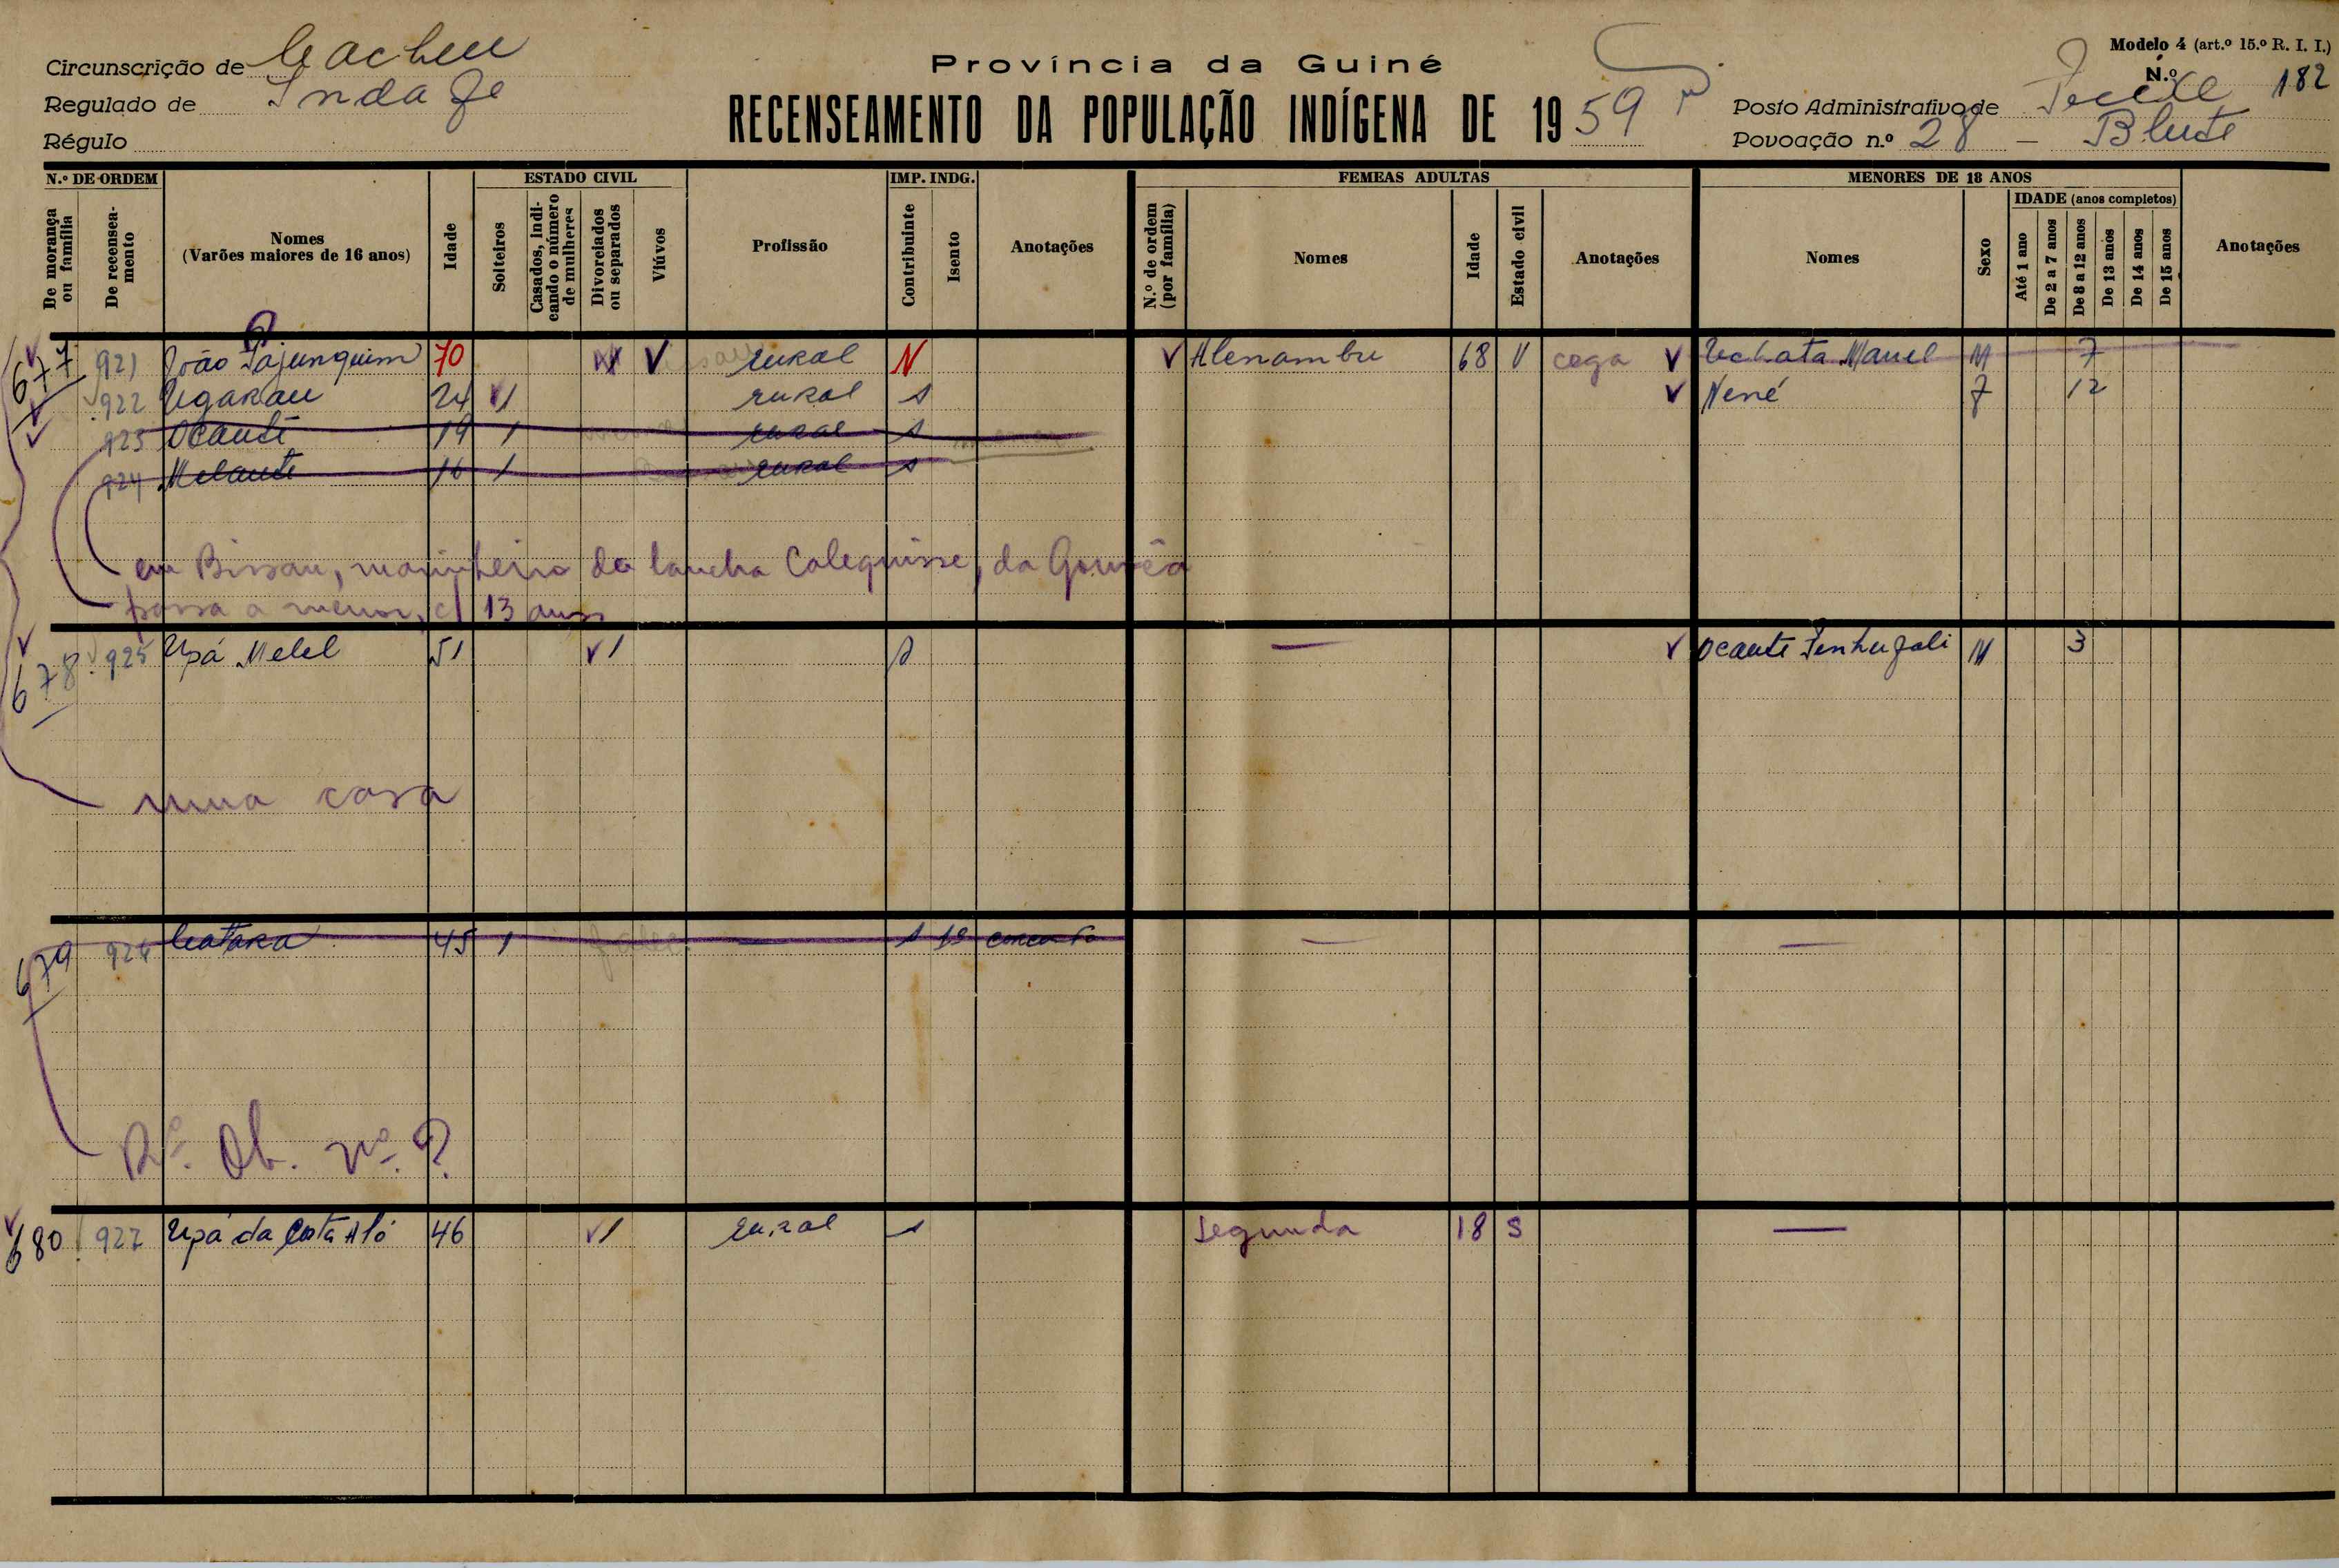 Circunscrição de Cacheu
Regulado de
Régulo
Província da Guiné
RECENSEAMENTO DA POPULAÇÃO INDÍGENA DE 1959
Modelo 4 (art.º 15.º R. I. I.)
N.º 182
Posto Administrativo de
Povoação n.º 28 —
N.º DE ORDEM
De morança ou família
De recenseamento
Nomes
(Varões maiores de 16 anos)
Idade
ESTADO CIVIL
Solteiros
Casados, indicando o número de mulheres
Divorciados ou separados
Viúvos
Profissão
IMP. INDG.
Contribuinte
Isento
Anotações
FEMEAS ADULTAS
N.º de ordem (por família)
Nomes
Idade
Estado civil
Anotações
MENORES DE 18 ANOS
Nomes
Sexo
IDADE (anos completos)
Até 1 ano
De 2 a 7 anos
De 8 a 12 anos
De 13 anos
De 14 anos
De 15 anos
Anotações
677 921 João 70 V rural N Alenambu 68 V cega M 7
922 Ugarau 24 rural s Nené 12
923 Ocante 19 1 rural s
924 Melaute 16 1 rural s
em Bissau, marinheiro da lancha Calequisse, da Gouvêa
passa a menor, c/ 13 anos
678 925 Upá Melel 51 1 s — Ocante M 3
numa casa
679 926 Catara 45 1 — s — —
Rº. Ob. nº. 9
680 927 Upá da Costa Aló 46 1 rural s Segunda 18 S —